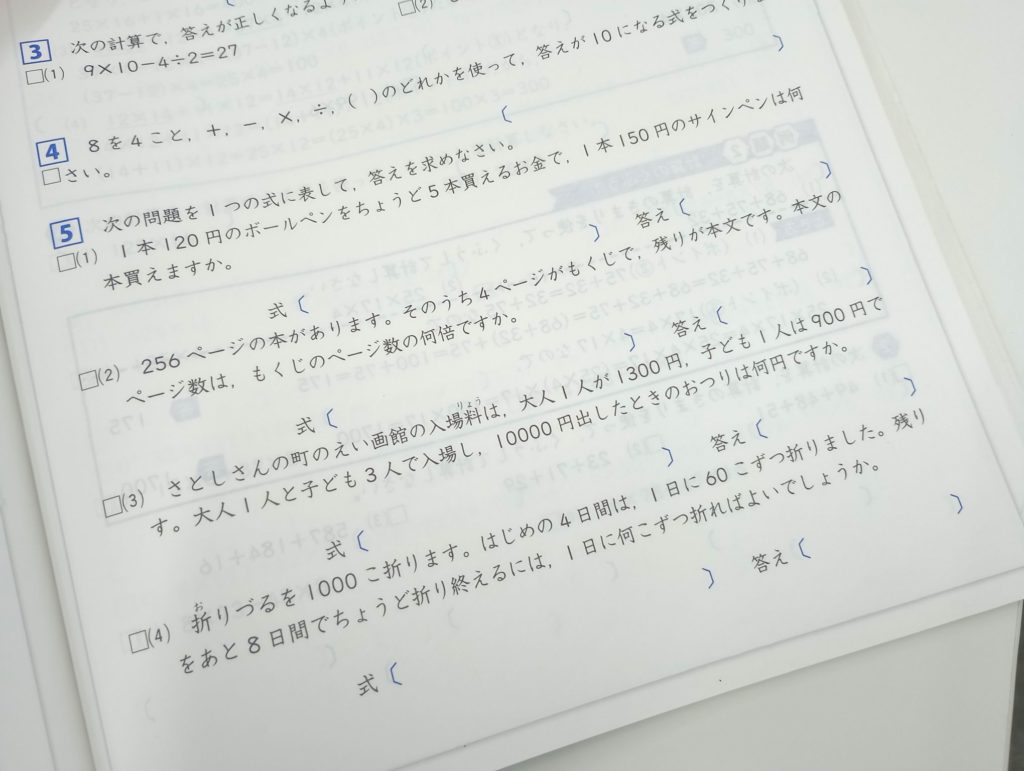 3 次の計算で，答えが正しくなるよう
□(2)
□(1) 9×10−4÷2=27
4 8を4こと，+，−，×，÷，( )のどれかを使って，答えが10になる式をつくりな
□さい。
5 次の問題を1つの式に表して，答えを求めなさい。
□(1) 1本120円のボールペンをちょうど5本買えるお金で，1本150円のサインペンは何
本買えますか。
式( ) 答え( )
□(2) 256ページの本があります。そのうち4ページがもくじで，残りが本文です。本文の
ページ数は，もくじのページ数の何倍ですか。
式( ) 答え( )
□(3) さとしさんの町のえい画館の入場料は，大人1人が1300円，子ども1人は900円で
りょう
す。大人1人と子ども3人で入場し，10000円出したときのおつりは何円ですか。
式( ) 答え( )
□(4) 折りづるを1000こ折ります。はじめの4日間は，1日に60こずつ折りました。残り
お
をあと8日間でちょうど折り終えるには，1日に何こずつ折ればよいでしょうか。
式( ) 答え( )